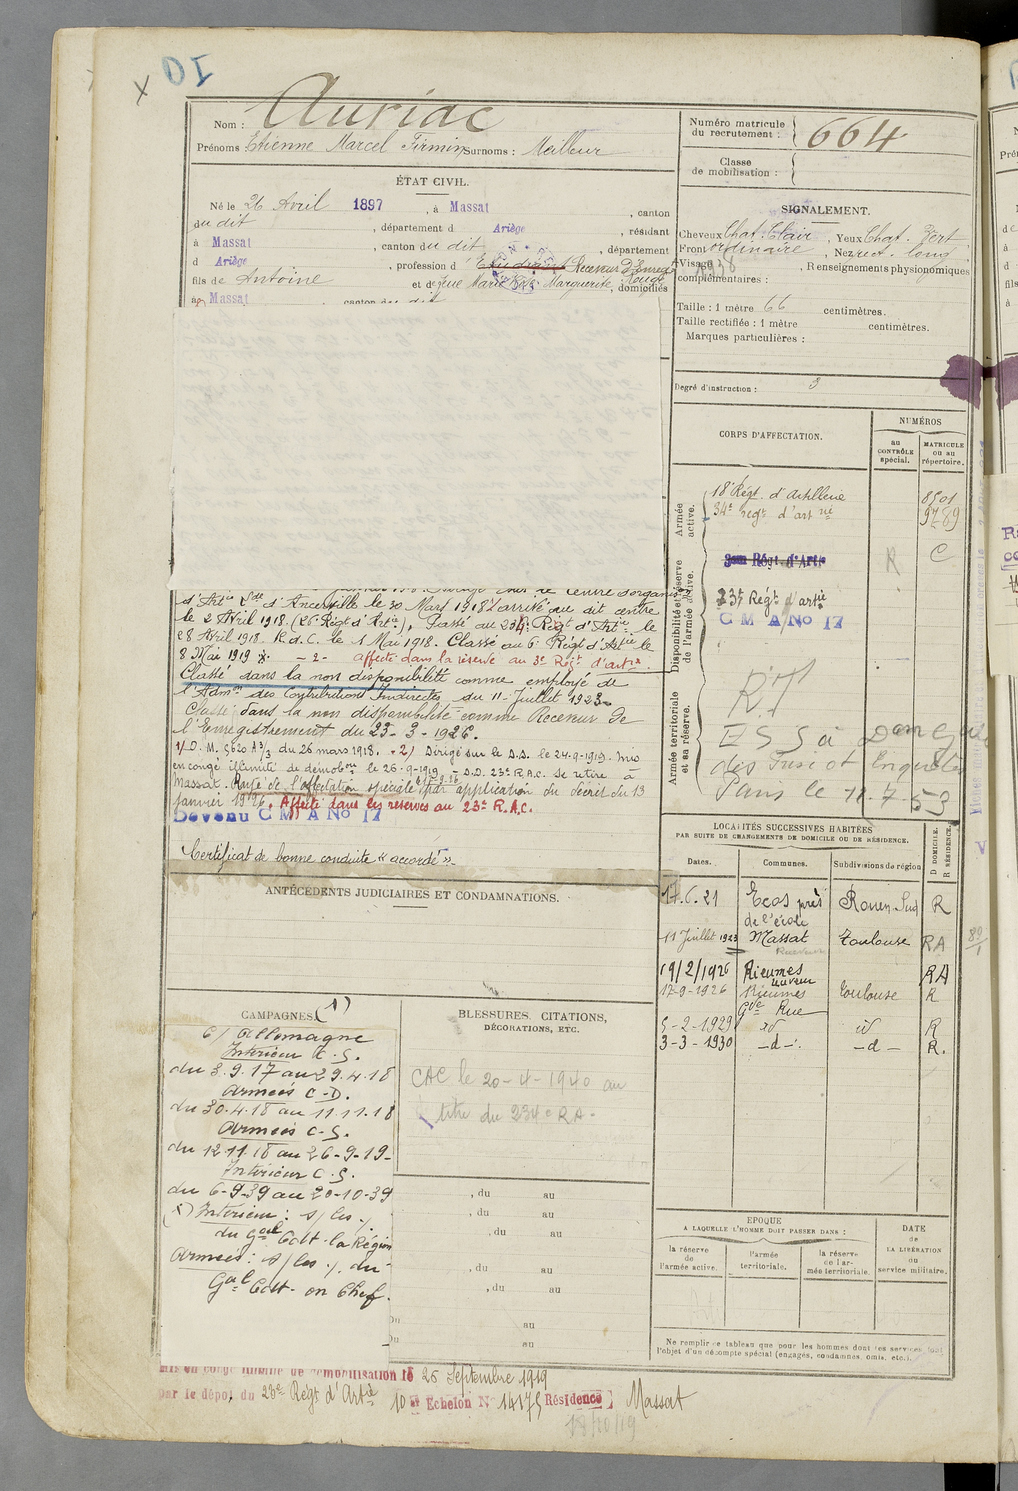 X
Nom : Auriac
Prénoms : Etienne Marcel Firmin Surnoms : Meilleur
ÉTAT CIVIL.
Né le 26 Avril 1897, à Massat, canton
du dit, département d Ariège, résidant
à Massat, canton du dit, département
d Ariège, profession d' Etudiant Receveur d'Enreg
fils de Antoine et de feue Marie Marguerite Rouge, domiciliés
à Massat canton du dit
Numéro matricule
du recrutement : 664
Classe
de mobilisation :
SIGNALEMENT.
Cheveux Chat. Clair, Yeux Chat. Vert
Front ordinaire, Nez rect. long
Visage, Renseignements physionomiques
complémentaires :
Taille : 1 mètre 66 centimètres.
Taille rectifiée : 1 mètre centimètres.
Marques particulières :
Degré d'instruction : 3
CORPS D'AFFECTATION.
NUMÉROS
au
CONTRÔLE
spécial.
MATRICULE
ou au
répertoire.
Armée
active.
18e Régt. d'artillerie 8501
34e regt d'art rie 9789
Disponibilité et réserve
de l'armée active.
3em Régt d'Artie R C
23e Régt d'artie
C M A No 17
Armée territoriale
et sa réserve.
RT
ESS à
Paris le 11.7.53
d'Artie de d'Ancerville le 30 Mars 1918 1/ arrivé au dit centre
le 2 Avril 1918. (26e Régt d'Artie). Passé au 234e Régt d'Artie le
28 Avril 1918. R.d.C. le 1 Mai 1918. Classé au 6e Régt d'Artie le
8 Mai 1919 - 2 - affecté dans la réserve au 3e Régt d'artie
Classé dans la non disponibilité comme employé de
l'Admon des Contributions Indirectes, du 11 Juillet 1923
Classé dans la non disponibilité comme Receveur de
l'Enregistrement du 23-3-1926.
1/ D.M. 5620 A3/3 du 26 mars 1918. - 2) Dirigé sur le D.D. le 24-9-1919. Mis
en congé illimité de démobon le 26-9-1919 - D.D. 23e R.A.C. Se retire à
Massat. Rayé de l'affectation spéciale par application du décret du 13
janvier 1926. Affecté dans les réserves au 23e R.A.C.
Devenu C M A No 17
Certificat de bonne conduite « accordé »
ANTÉCÉDENTS JUDICIAIRES ET CONDAMNATIONS.
LOCALITÉS SUCCESSIVES HABITÉES
PAR SUITE DE CHANGEMENTS DE DOMICILE OU DE RÉSIDENCE.
D DOMICILE.
R RÉSIDENCE.
Dates. Communes. Subdivisions de région
17.6.21 Ecos près de l'école Rouen Sud R
11 Juillet 1923 Massat Toulouse RA
19/2/1926 Rieumes RA
17-9-1926 Rieumes Toulouse R
Gde Rue
5-2-1929 id id R
3-3-1930 -d- -d- R.
CAMPAGNES. (1)
C/ Allemagne
Intérieur C.S.
du 3.9.17 au 29.4.18
Armées C-D.
du 30.4.18 au 11.11.18
Armées C-S.
du 12.11.18 au 26-9-19-
Intérieur C.S.
du 6-9-39 au 20-10-39
(1) Intérieur : s/ les
du Gal Cdt. la Région
Armées : s/ les du
Gal Cdt. en Chef.
BLESSURES, CITATIONS,
DÉCORATIONS, ETC.
CAC le 20-4-1940 au
titre du 234e RA -
, du au
, du au
, du au
, du au
, du au
Du au
Du au
EPOQUE
A LAQUELLE L'HOMME DOIT PASSER DANS :
la réserve
de
l'armée active.
l'armée
territoriale.
la réserve
de l'ar-
mée territoriale.
DATE
de
LA LIBÉRATION
du
service militaire.
Ne remplir ce tableau que pour les hommes dont les services font
l'objet d'un décompte spécial (engagés, condamnés, omis, etc.).
Mis en congé illimité de démobilisation le 26 Septembre 1919
par le dépôt du 23e Régt d'Artie 10e Echelon No 14175 Résidence Massat
18/10/19